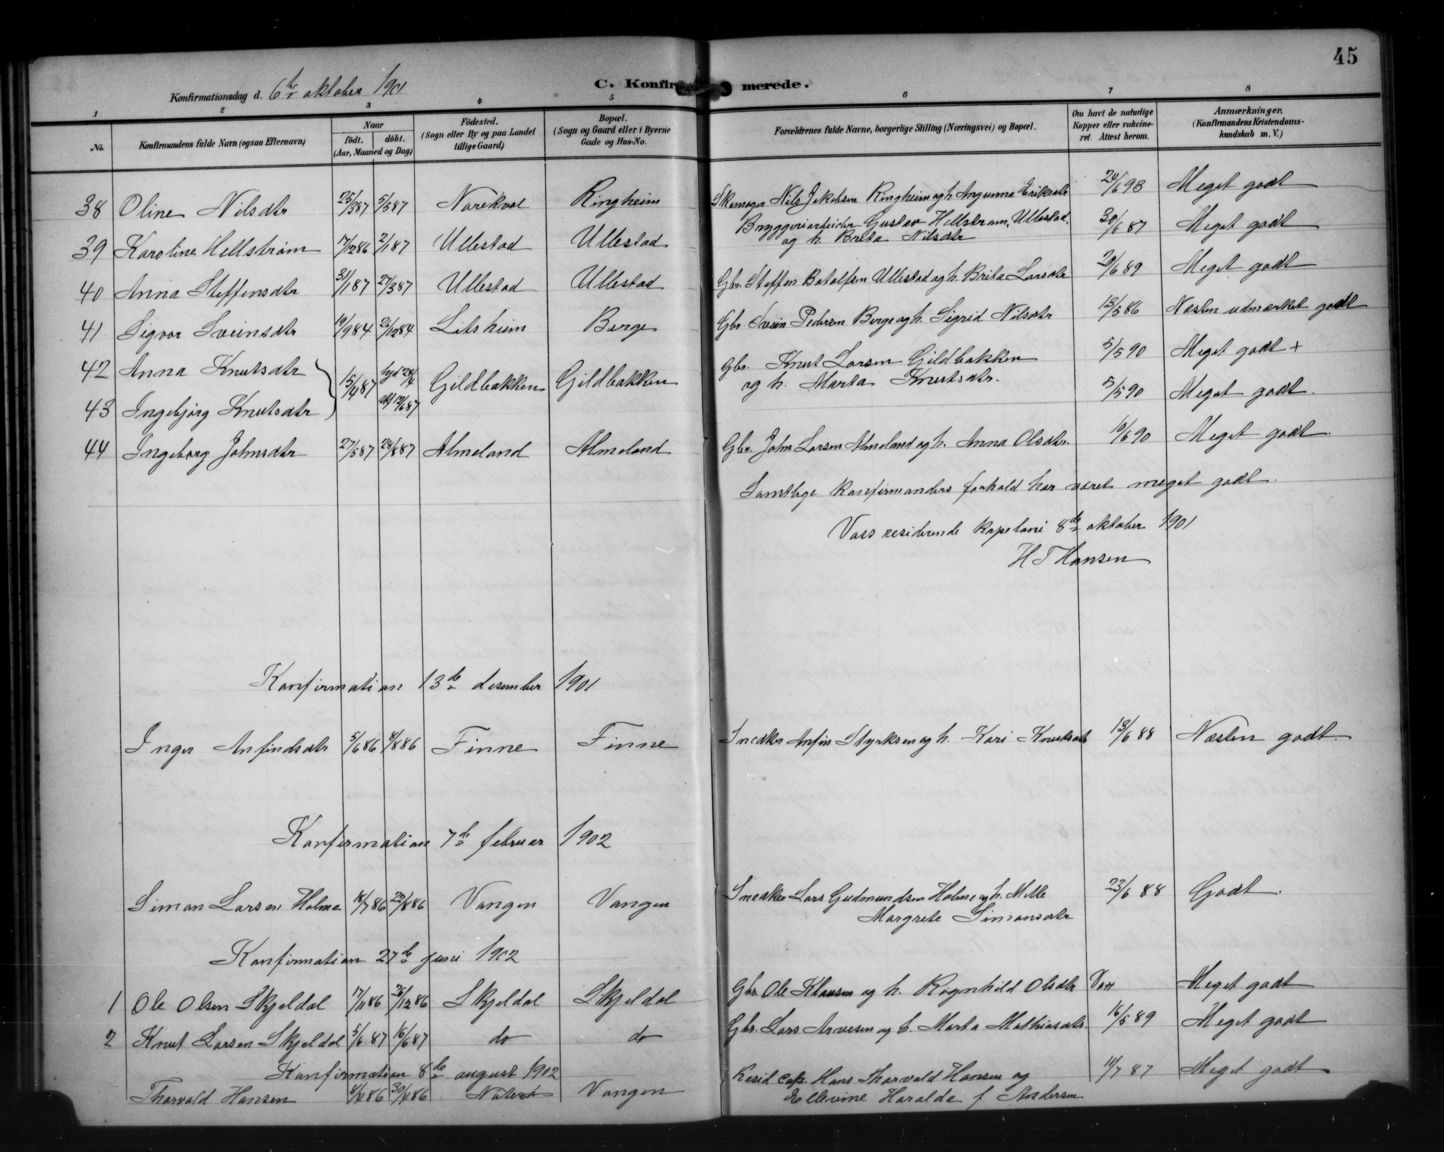 45
C. Konfirmerede.
Konfirmationsdag d. 6te oktober 1901
1 2 3 4 5 6 7 8
No. Konfirmandens fulde Navn (ogsaa Efternavn) Naar født. døbt. (Aar, Maaned og Dag) Fødested. (Sogn eller By og paa Landet tillige Gaard) Bopæl. (Sogn og Gaard eller i Byerne Gade og Hus-No. Forældrenes fulde Navne, borgerlige Stilling (Næringsvei) og Bopæl. Om havt de naturlige Kopper eller vaccineret. Attest herom. Anmærkninger. (Konfirmandens Kristendomskundskab m. V.)
38 Oline Nilsdtr 25/3 87 5/5 87 Ringheim Skomager Nils Jakobsen Ringheim og h. Eriksdtr 24/6 98 Meget godt
39 Karoline Hellstrøm 17/12 86 2/1 87 Ullestad Ullestad Bryggeriarbeider Gustav Hellstrøm, Ullestad 30/6 87 Meget godt
og h. Brita Nilsdtr
40 Anna Steffensdtr 3/1 87 27/3 87 Ullestad Ullestad Gbr. Steffen Botolfsen Ullestad og h. Brita Larsdtr 6 89 Meget godt
41 Sigvor Sveinsdtr 9 84 12 84 Berge Gbr. Svein Pedersen Berge og h. Sigrid Nilsdtr 13/5 86 Næsten udmærket godt
42 Anna Knutsdtr Gbr. Knut Larsen Gildbakken 5/5 90 Meget godt +
15/4 87 Gildbakken Gildbakken og h. Marta Knutsdtr.
43 Ingebjørg Knutsdtr 5/5 90 Meget godt.
44 Ingeborg Johnsdtr 27/5 87 28/8 87 Almeland Almeland Gbr. John Larsen Almeland og h. Anna Olsdtr. 6 90 Meget godt.
Samtlige konfirmanders forhold har været meget godt.
Voss residerende kapelani 8de oktober 1901
H T Hansen
Konfirmation 13de desember 1901
Inger Anfindsdtr 5/6 86 8 86 Finne Finne Snedker Anfin Styrksen og h. Kari Knutsdtr 13/6 88 Næsten godt.
Konfirmation 7de februar 1902
Simon Larsen Holme 18/7 86 29/8 86 Vangen Vangen Snedker Lars Gudmundsen Holme og h. Mille 23/6 88 Godt.
Margrete Simonsdtr
Konfirmation 27de juni 1902
1 Ole Olsen Skjeldal 17/11 86 26/12 86 Skjeldal Skjeldal Gbr. Ole og h. Rognhild Olsdtr Meget godt
2 Knut Larsen Skjeldal 5/6 87 19/6 87 do do Gbr. Lars Arvesen og h. Marta Mathiasdtr 16/5 89 Meget godt
Konfirmation 8de august 1902
Thorvald Hansen 86 30 86 Vangen Resid. Cap. Hans Thorvald Hansen og 7 87 Meget godt
Haralda f. Andersen